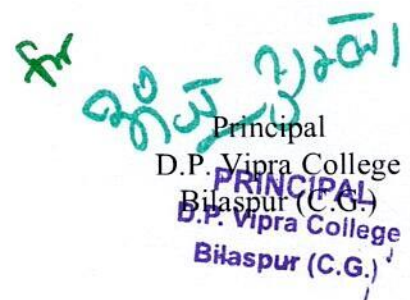 for
Principal
D.P. Vipra College
Bilaspur (C.G.)
PRINCIPAL
D.P. Vipra College
Bilaspur (C.G.)